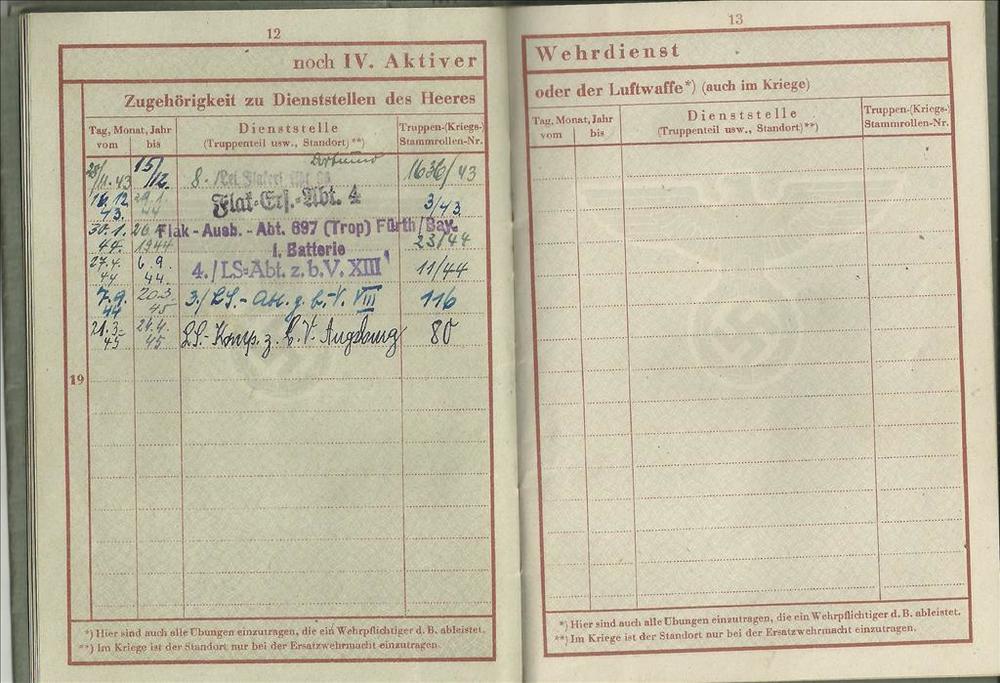 12
noch IV. Aktiver
Zugehörigkeit zu Dienststellen des Heeres
Tag, Monat, Jahr
vom bis
Dienststelle
(Truppenteil usw., Standort)**)
Truppen-(Kriegs-)
Stammrollen-Nr.
Dortmund
28/11.43 15/12. 8. 1636/43
16.12.43. Flak-Ers.-Abt. 4 3/43
30.1.44. 26.4.1944 Flak-Ausb.-Abt. 697 (Trop) Fürth/Bay. 23/44
1. Batterie
27.4.44 6.9.44. 4./LS-Abt. z.b.V. XIII 11/44
7.9.44 20.3.45 3./LS.-Abt. z. b. V. VIII 116
21.3.45 24.4.45 LS.-Komp. z. b. V. Augsburg 80
19
*) Hier sind auch alle Übungen einzutragen, die ein Wehrpflichtiger d. B. ableistet.
**) Im Kriege ist der Standort nur bei der Ersatzwehrmacht einzutragen.
13
Wehrdienst
oder der Luftwaffe*) (auch im Kriege)
Tag, Monat, Jahr
vom bis
Dienststelle
(Truppenteil usw., Standort)**)
Truppen-(Kriegs-)
Stammrollen-Nr.
*) Hier sind auch alle Übungen einzutragen, die ein Wehrpflichtiger d. B. ableistet.
**) Im Kriege ist der Standort nur bei der Ersatzwehrmacht einzutragen.